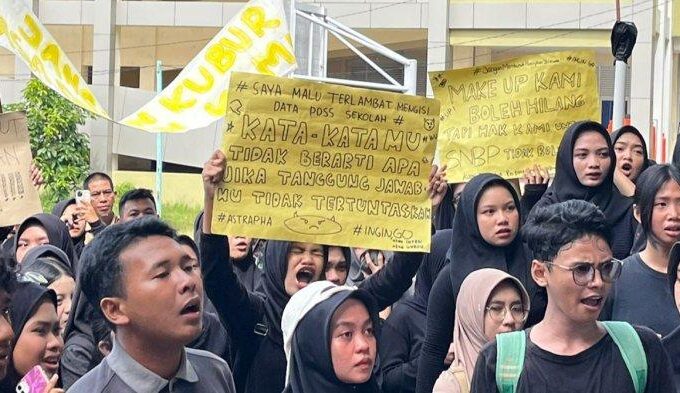 KUBUR
# SAYA MALU TERLAMBAT MENGISI
DATA PDSS SEKOLAH #
KATA-KATA MU
TIDAK BERARTI APA²
JIKA TANGGUNG JAWAB
MU TIDAK TERTUNTASKAN
#ASTRAPHA
#INGINGO
MAKE UP KAMI
BOLEH HILANG
TAPI HAK KAMI UNTUK
SNBP TIDAK BOLEH